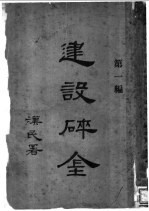 第一編
建設碎金
漢民署